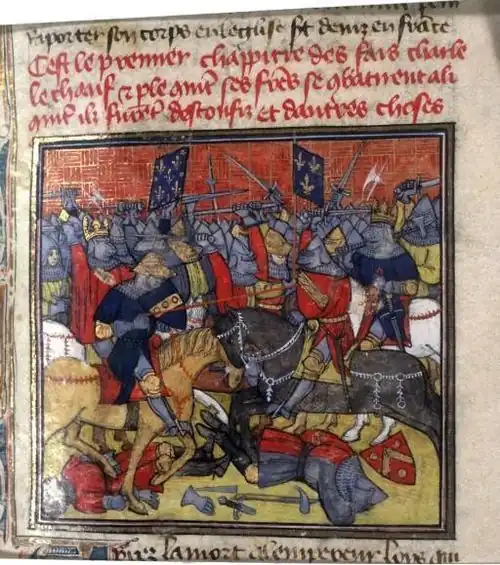 raporter son corps en leglise st denis en france
Cest le premier chapitre des fais charle
le chauf & ple quit ses freres se gbatirent a li
quit ilz furet desconfiz et dautres choses
pres la mort de lempereur loys